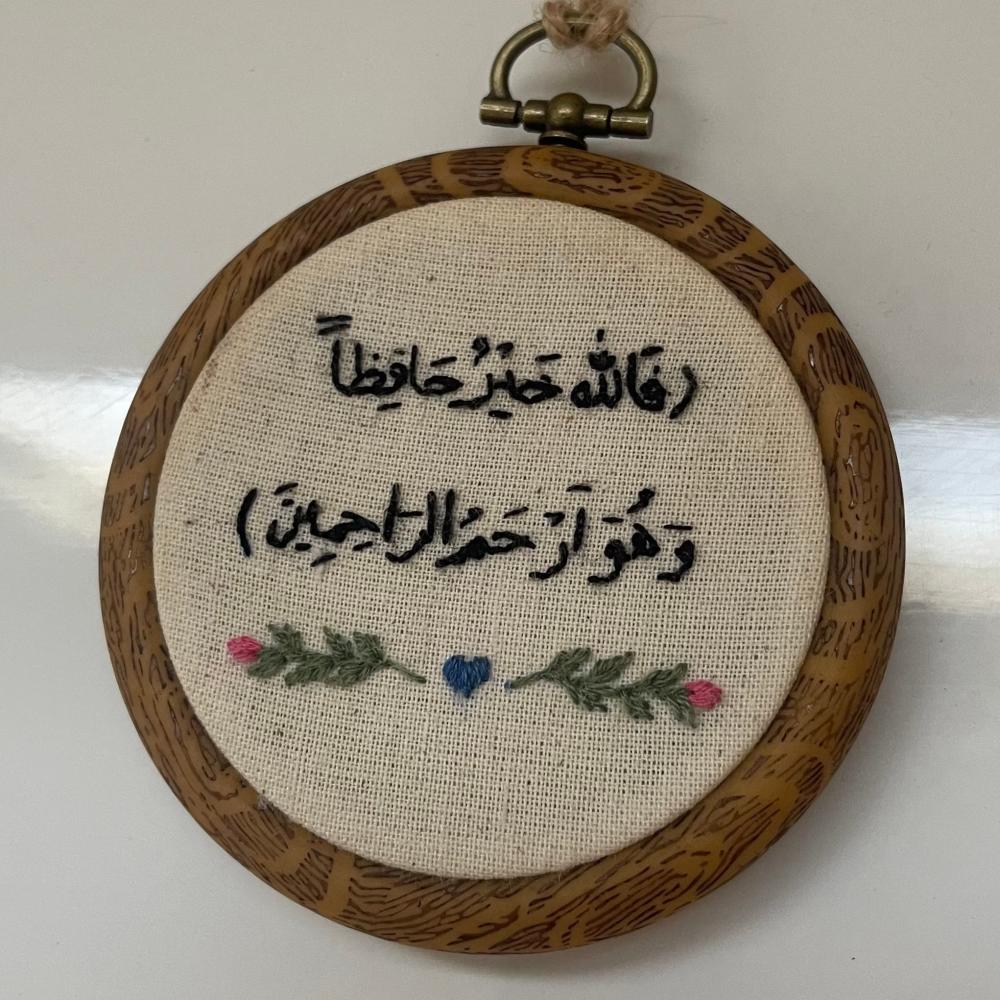 (فَاللّٰه خَيْرُ حَافِظاً
وَهُوَ اَرْحَمُ الرَاحِمِينَ)